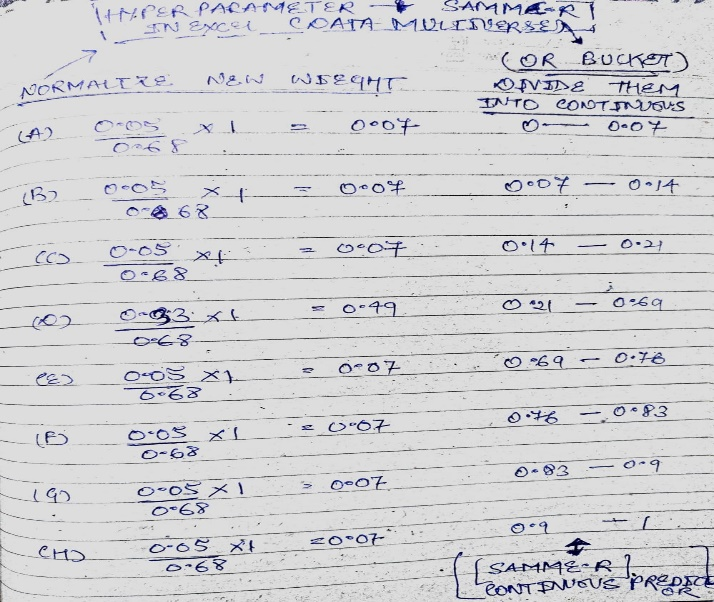 HYPER PARAMETER → SAMME-R
IN EXCEL (DATA MULTIVERSE)
(OR BUCKET)
NORMALIZE NEW WEIGHT
DIVIDE THEM
INTO CONTINUOUS
(A) 0.05/0.68 × 1 = 0.07 0 — 0.07
(B) 0.05/0.68 × 1 = 0.07 0.07 — 0.14
(C) 0.05/0.68 × 1 = 0.07 0.14 — 0.21
(D) 0.33/0.68 × 1 = 0.49 0.21 — 0.69
(E) 0.05/0.68 × 1 = 0.07 0.69 — 0.76
(F) 0.05/0.68 × 1 = 0.07 0.76 — 0.83
(G) 0.05/0.68 × 1 = 0.07 0.83 — 0.9
(H) 0.05/0.68 × 1 = 0.07 0.9 — 1
[SAMME-R]
CONTINUOUS PREDICE
OR